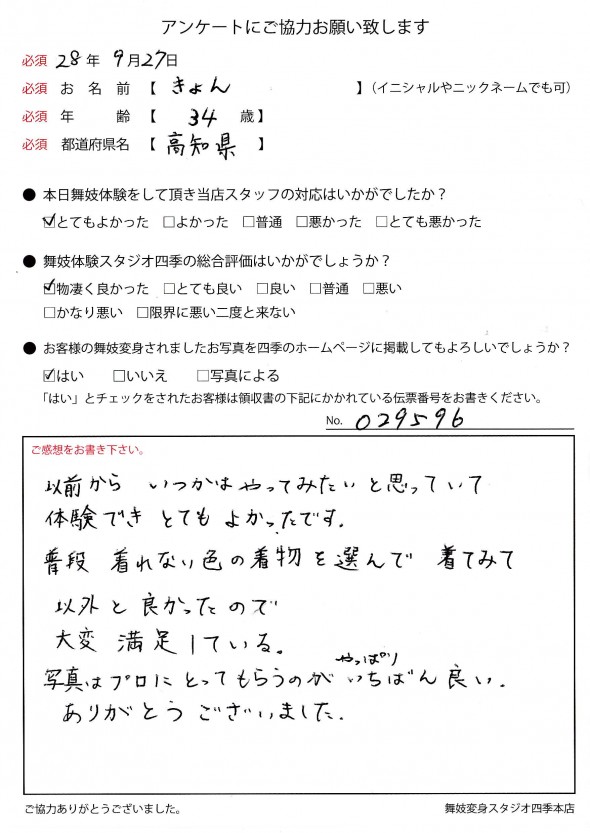 アンケートにご協力お願い致します
必須 28年 9月27日
必須 お名前 【 きょん 】（イニシャルやニックネームでも可）
必須 年齢 【 34 歳】
必須 都道府県名 【 高知県 】
● 本日舞妓体験をして頂き当店スタッフの対応はいかがでしたか？
☑とてもよかった □よかった □普通 □悪かった □とても悪かった
● 舞妓体験スタジオ四季の総合評価はいかがでしょうか？
☑物凄く良かった □とても良い □良い □普通 □悪い
□かなり悪い □限界に悪い二度と来ない
● お客様の舞妓変身されましたお写真を四季のホームページに掲載してもよろしいでしょうか？
☑はい □いいえ □写真による
「はい」とチェックをされたお客様は領収書の下記にかかれている伝票番号をお書きください。
No. 029596
ご感想をお書き下さい。
以前から いつかは やってみたい と思っていて
体験でき とても よかったです.
普段 着れない色の着物を選んで 着てみて
以外と良かったので
大変 満足している。
やっぱり
写真はプロにとってもらうのが いちばん良い.
ありがとう ございました.
ご協力ありがとうございました。
舞妓変身スタジオ四季本店